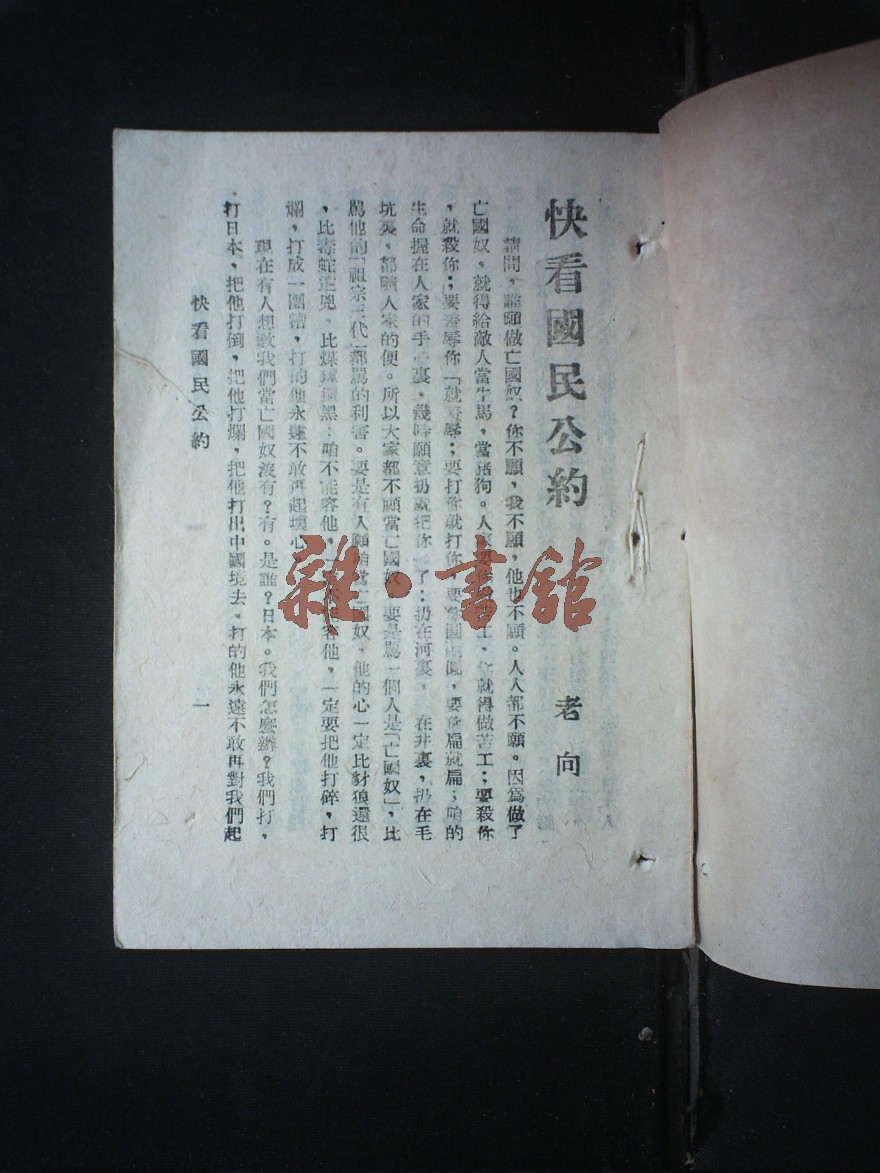 快看國民公約
老向
請問，誰願做亡國奴？你不願，我不願，他也不願。人人都不願。因爲做了
亡國奴，就得給敵人當牛馬，當猪狗。人家要你做苦工，你就得做苦工；要殺你
，就殺你；要羞辱你「就羞辱；要打你就打你，要圓就圓，要扁就扁；咱的
生命握在人家的手心裏，幾時願意扔就把你扔了：扔在河裏，扔在井裏，扔在毛
坑裏，都隨人家的便。所以大家都不願當亡國奴。要是罵一個人是「亡國奴」，比
罵他的「祖宗三代」都罵的利害。要是有人願咱當亡國奴，他的心一定比豺狼還很
，比毒蛇還兇，比煤球還黑；咱不能容他，一定不容他，一定要把他打碎，打
爛，打成一團糟，打的他永遠不敢再起壞心。
現在有人想敎我們當亡國奴沒有？有。是誰？日本。我們怎麼辦？我們打，
打日本，把他打倒，把他打爛，把他打出中國境去。打的他永遠不敢再對我們起
快看國民公約
一
雜·書館